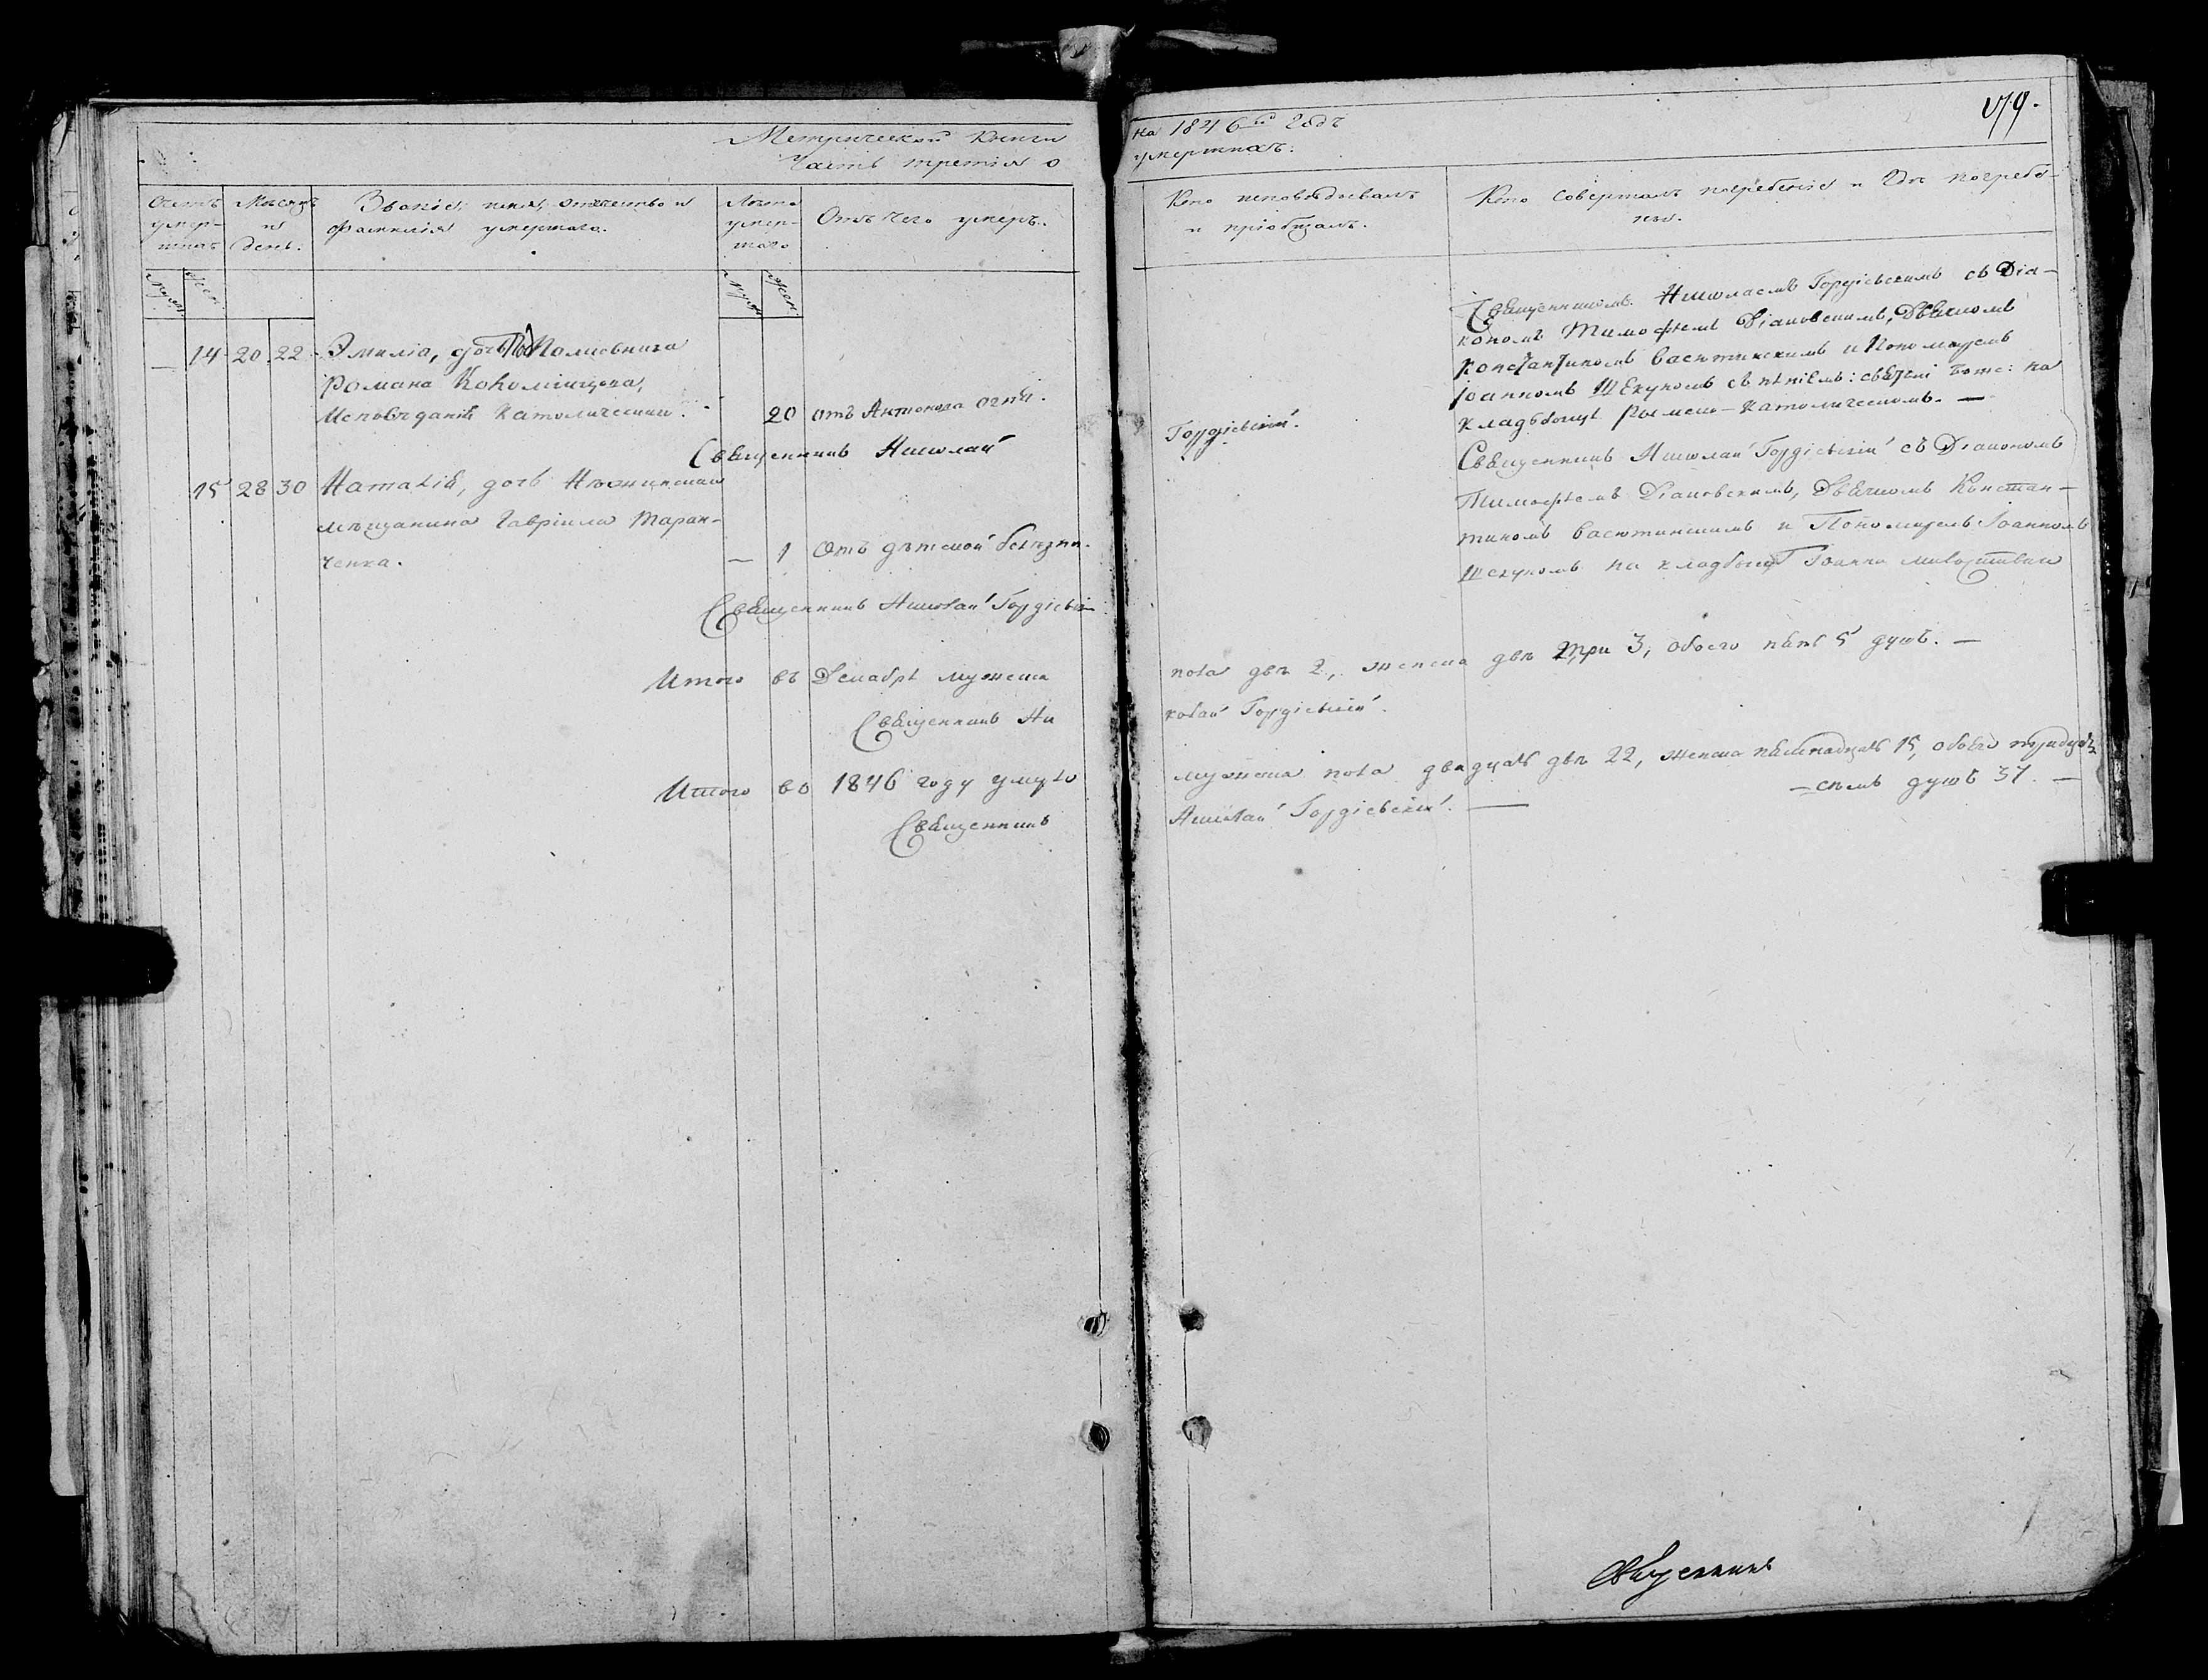 Метрической книги
Часть третія о
на 1846й годъ
умершихъ:
179.
Счетъ умер-шихъ
Мѣсяцъ и день.
Званіе, имя, отчество и фамилія умершаго.
Лѣта умер-шаго
Отъ чего умеръ.
Кто исповѣдывалъ и пріобщалъ.
Кто совершалъ погребеніе и гдѣ погребе-ны.
Муж. Жен.
Муж. Жен.
— 14 20 22 Эмилія, дочь Полковника
Романа
Исповѣданія Католическаго.
20 отъ Антонова огня.
Священникъ Николай
Гордіевскій.
Священникомъ Николаемъ Гордіевскимъ съ Діа-
кономъ Тимофеемъ Діановскимъ, Дьячкомъ
Константиномъ Васютинскимъ и Пономаремъ
Іоанномъ Шекуномъ съ пѣніемъ: святый Боже: на
кладбищѣ Римско-Католическомъ. —
15 28 30 Наталія, дочь Нѣжинскаго
мѣщанина Гавріила Таран-
ченка.
— 1 Отъ дѣтской болѣзни.
Священникъ Николай Гордіевскій
Священникъ Николай Гордіевскій съ Діакономъ
Тимофеемъ Діановскимъ, Дьячкомъ Констан-
тиномъ Васютинскимъ и Пономаремъ Іоанномъ
Шекуномъ на кладбищѣ Іоанна Милостиваго
Итого въ Декабрѣ мужеска
пола два 2, женска три 3, обоего пять 5 душъ. —
Священникъ Ни
колай Гордіевскій.
Итого въ 1846 году умерло
мужеска пола двадцать два 22, женска пятнадцать 15, обоего тридцать
— семь душъ 37. —
Священникъ
Николай Гордіевскій. —
Священникъ